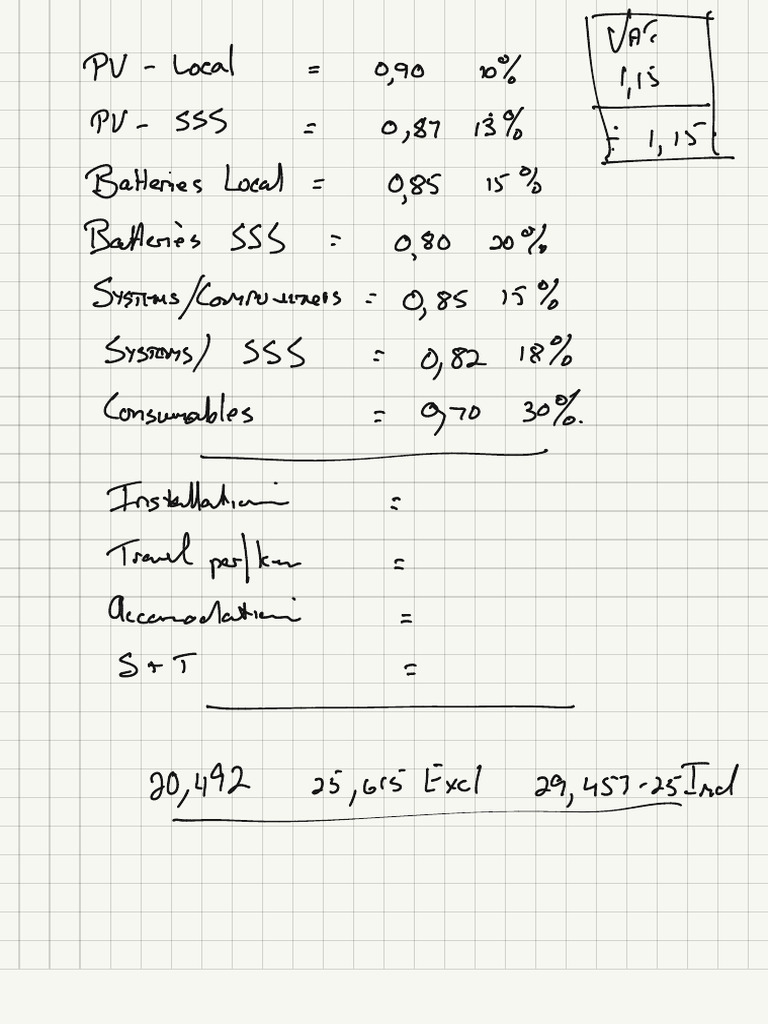 PV - Local = 0,90 10%
VAT
1,15
÷ 1,15
PV - SSS = 0,87 13%
Batteries Local = 0,85 15%
Batteries SSS = 0,80 20%
Systems/Components = 0,85 15%
Systems/ SSS = 0,82 18%
Consumables = 0,70 30%.
Installation =
Travel per/km =
Accomodation =
S + T =
20,492 25,615 Excl 29,457-25 Incl